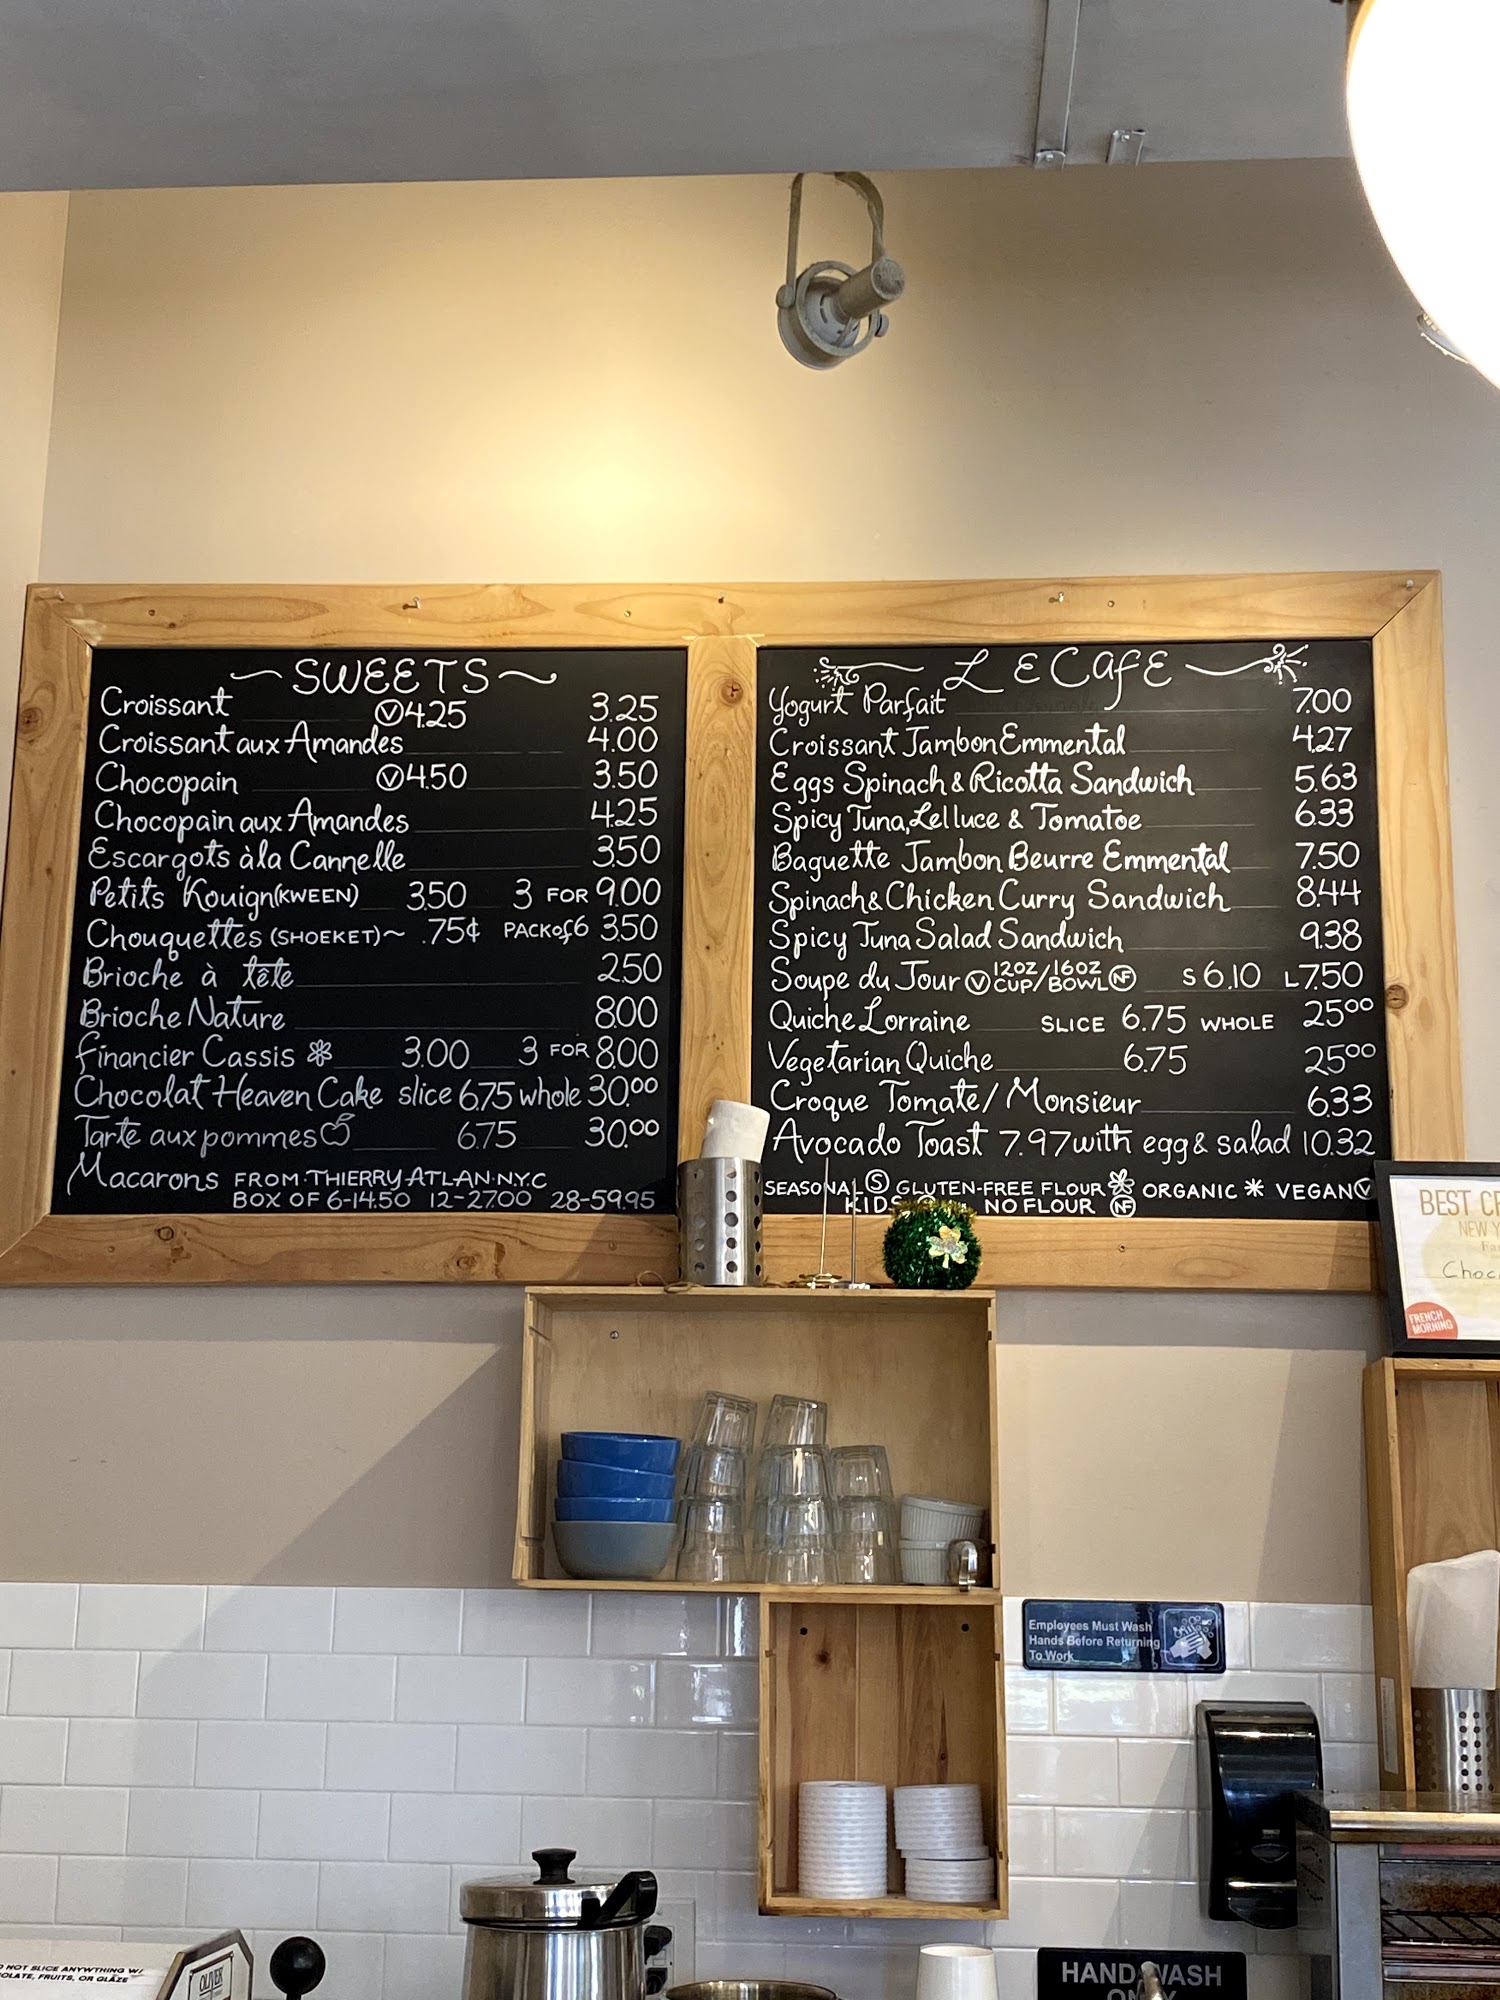 SWEETS
Croissant Ⓥ4.25 3.25
Croissant aux Amandes 4.00
Chocopain Ⓥ4.50 3.50
Chocopain aux Amandes 4.25
Escargots àla Cannelle 3.50
Petits Kouign(KWEEN) 3.50 3 FOR 9.00
Chouquettes (SHOEKET)~ .75¢ PACK of 6 3.50
Brioche à tête 2.50
Brioche Nature 8.00
financier Cassis 3.00 3 FOR 8.00
Chocolat Heaven Cake slice 6.75 whole 30.00
Tarte aux pommes 6.75 30.00
Macarons FROM·THIERRY ATLAN·N.Y.C
BOX OF 6-14.50 12-27.00 28-59.95
LE CAfE
Yogurt Parfait 7.00
Croissant Jambon Emmental 4.27
Eggs Spinach & Ricotta Sandwich 5.63
Spicy Tuna, Lelluce & Tomatoe 6.33
Baguette Jambon Beurre Emmental 7.50
Spinach & Chicken Curry Sandwich 8.44
Spicy Tuna Salad Sandwich 9.38
Soupe du Jour Ⓥ 12OZ/16OZ CUP/BOWL NF S 6.10 L 7.50
Quiche Lorraine SLICE 6.75 WHOLE 25.00
Vegetarian Quiche 6.75 25.00
Croque Tomate/Monsieur 6.33
Avocado Toast 7.97 with egg & salad 10.32
SEASONAL Ⓢ GLUTEN-FREE FLOUR ORGANIC * VEGAN Ⓥ
KIDS NO FLOUR NF
BEST
NEW
FRENCH
MORNING
Employees Must Wash
Hands Before Returning
To Work
NOT SLICE ANYWTHING W/
FRUITS, OR GLAZE
OLIVER
HAND WASH
ONLY